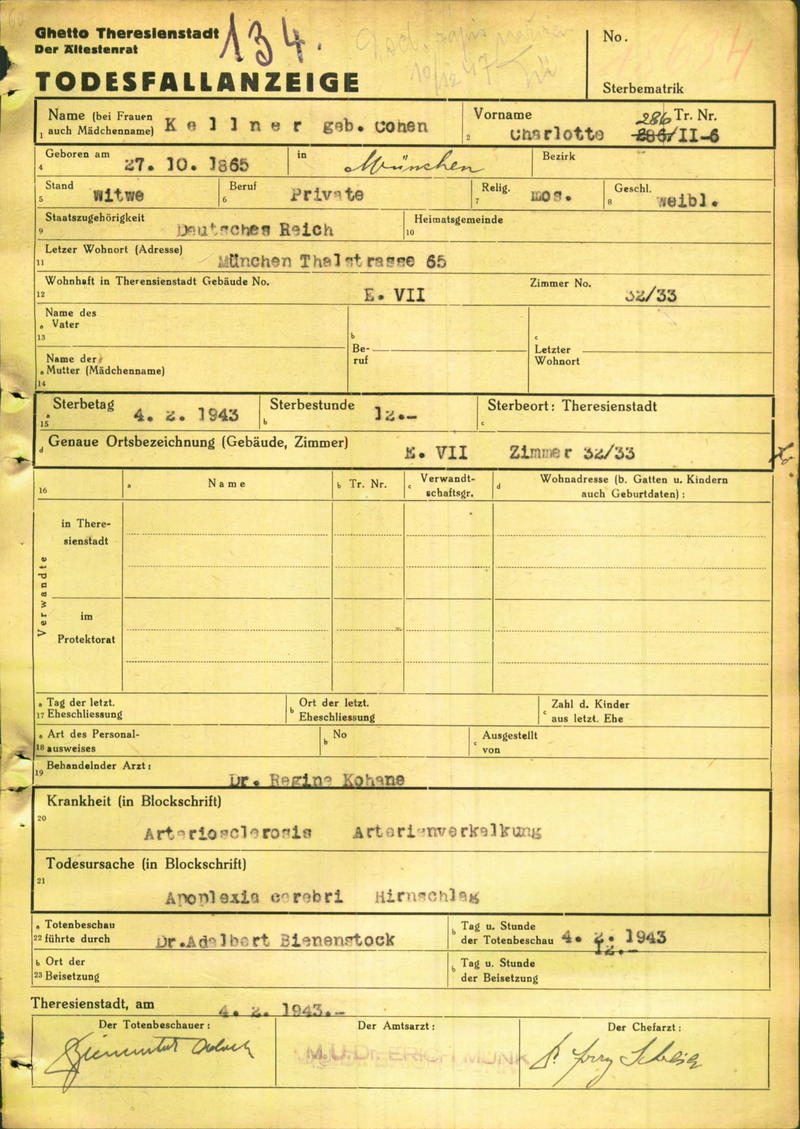 Ghetto Theresienstadt
Der Ältestenrat
134.
No.
TODESFALLANZEIGE
Sterbematrik
Name (bei Frauen auch Mädchenname) 1 Kellner geb. Cohen
Vorname 2 Charlotte 286 Tr. Nr. /II-6
Geboren am 4 27. 10. 1865 in München Bezirk
Stand 5 Witwe Beruf 6 Private Relig. 7 mos. Geschl. 8 weibl.
Staatszugehörigkeit 9 Deutsches Reich Heimatsgemeinde 10
Letzer Wohnort (Adresse) 11 München Thalstrasse 65
Wohnhaft in Therensienstadt Gebäude No. 12 E. VII Zimmer No. 32/33
Name des
a Vater
13
b Beruf
c Letzter Wohnort
Name der
a Mutter (Mädchenname)
14
Sterbetag a 15 4. 2. 1943 Sterbestunde b 12.- Sterbeort: Theresienstadt c
d Genaue Ortsbezeichnung (Gebäude, Zimmer) E. VII Zimmer 32/33
16 a Name b Tr. Nr. c Verwandtschaftsgr. d Wohnadresse (b. Gatten u. Kindern auch Geburtdaten):
Verwandte
in Theresienstadt
im Protektorat
a Tag der letzt. 17 Eheschliessung b Ort der letzt. Eheschliessung c Zahl d. Kinder aus letzt. Ehe
a Art des Personal- 18 ausweises b No c Ausgestellt von
19 Behandelnder Arzt: Dr. Regina Kohane
Krankheit (in Blockschrift)
20
Arteriosclerosis Arterienverkalkung
Todesursache (in Blockschrift)
21
Apoplexia cerebri Hirnschlag
a Totenbeschau 22 führte durch Dr. Adalbert Bienenstock b Tag u. Stunde der Totenbeschau 4. 2. 1943
12.-
b Ort der 23 Beisetzung b Tag u. Stunde der Beisetzung
Theresienstadt, am 4. 2. 1943.-
Der Totenbeschauer: Der Amtsarzt: Der Chefarzt:
M.U.Dr. ERICH MUNK